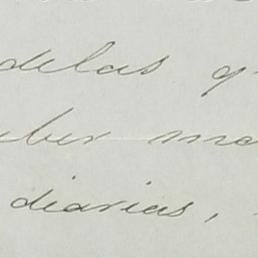 delas q
uber ma
diarias,